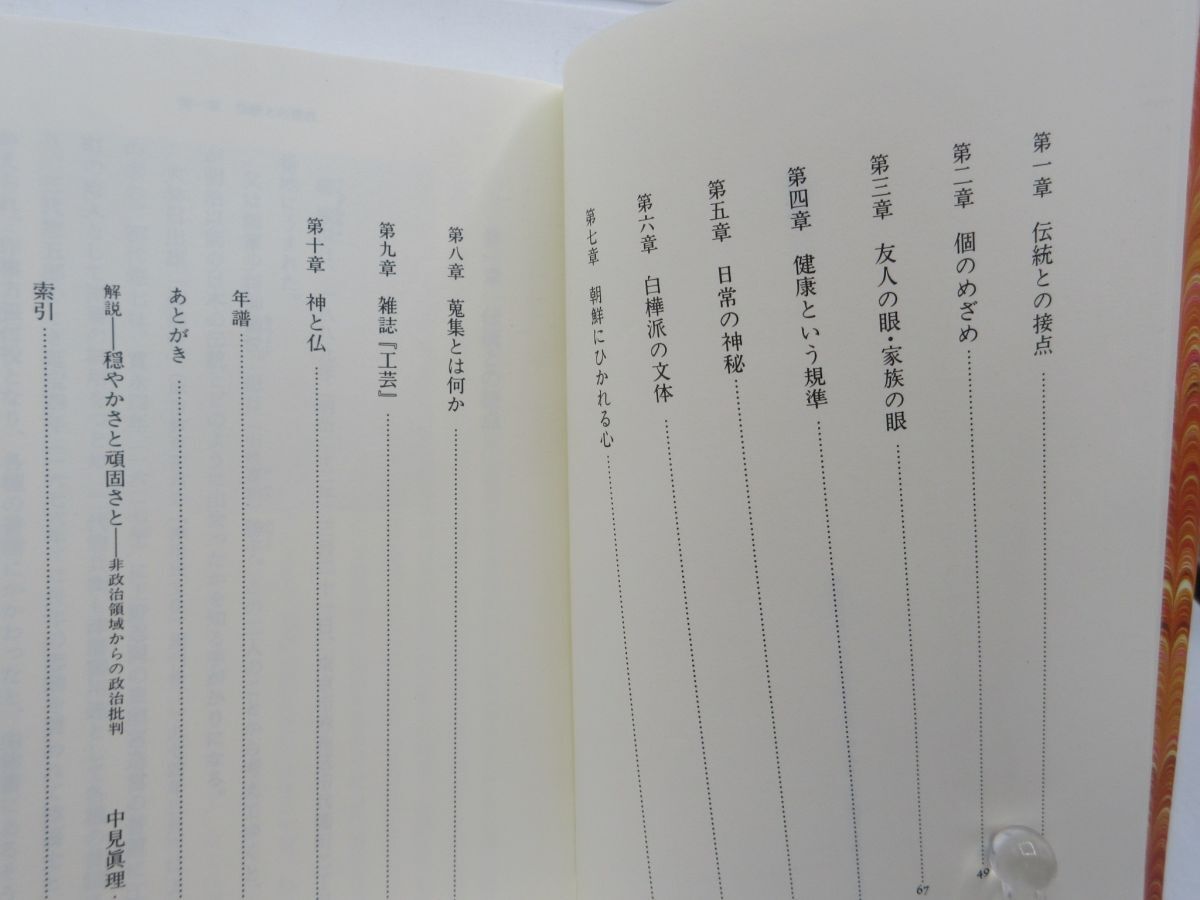 第一章 伝統との接点
第二章 個のめざめ 49
第三章 友人の眼・家族の眼 67
第四章 健康という規準
第五章 日常の神秘
第六章 白樺派の文体
第七章 朝鮮にひかれる心
第八章 蒐集とは何か
第九章 雑誌『工芸』
第十章 神と仏
年譜
あとがき
解説――穏やかさと頑固さと――非政治領域からの政治批判 中見眞理
索引